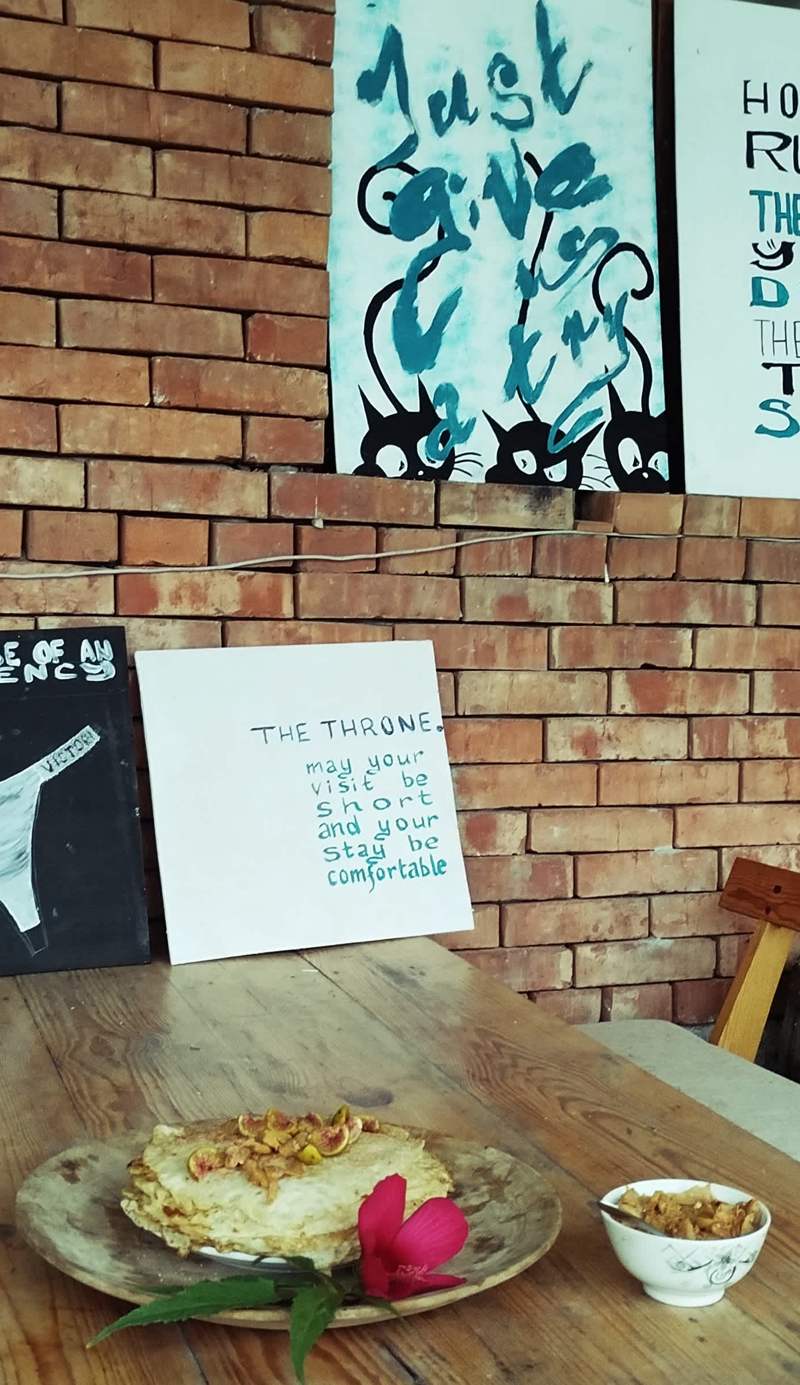 Just
give
us
a try
HO
RU
THE
y
D
THE
T
S
SE OF AN
ENCY
VICTORI
THE THRONE.
may your
visit be
short
and your
stay be
comfortable